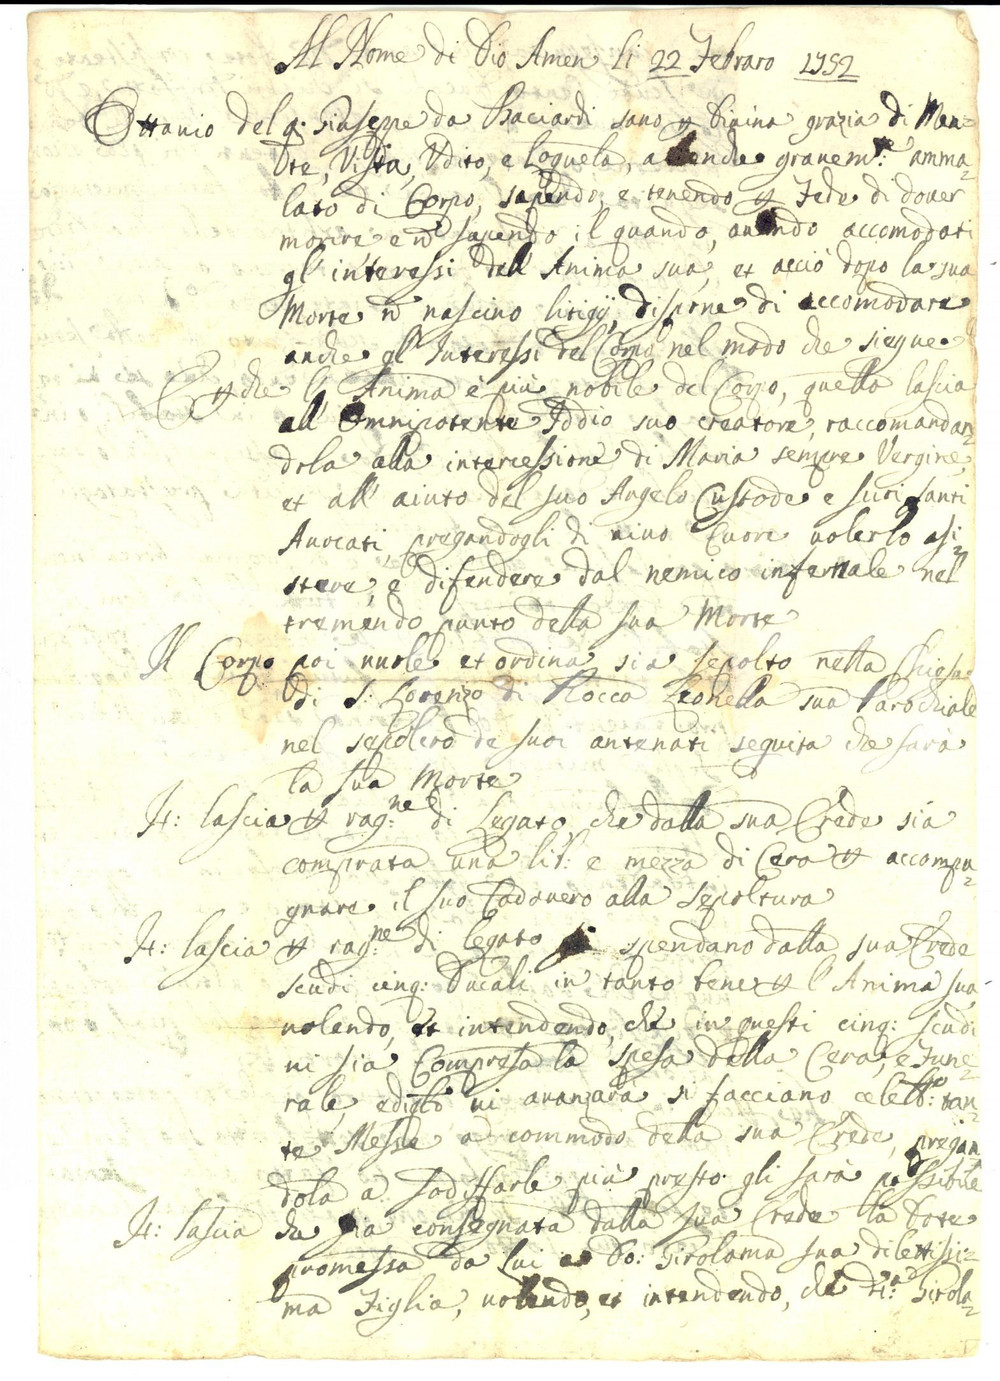 Al Nome di Dio Amen li 22 Febraro 1752
Ottavio del q: Giuseppe da Paciardi sano p Divina grazia di Men=
te, Vista, Udito, e loquela, a benche gravem.te amma=
lato di Corpo, sapendo, e tenendo p Fede di dover
morire e n̄ sapendo il quando, avendo accomodati
gl'interessi dell'Anima sua, et acciò dopo la sua
Morte n̄ naschino litigij, dispone di accomodare
anche gl'Interessi del Corpo nel modo che siegue
E p che l'Anima è più nobile del Corpo, quella lascia
all'Omnipotente Iddio suo creatore, raccomandan=
dola alla intercessione di Maria sempre Vergine
et all'aiuto del suo Angelo Custode e suoi santi
Avocati, pregandogli di vivo Cuore volerlo asi=
stere, e difendere dal nemico infernale nel
tremendo punto della sua Morte
Il Corpo poi vuole et ordina sia sepolto nella Chiesa
di S: Lorenzo di Rocca Leonella sua Parochiale
nel sepolcro de suoi antenati seguita che sarà
la sua Morte
It: lascia p rag.ne di Legato, che dalla sua Erede sia
comprata una lib: e mezza di Cera p accompa=
gnare il suo Cadavero alla sepoltura
It: lascia p rag.ne di legato si spendano dalla sua Erede
scudi cinq: Ducali in tanto bene p l'Anima sua
volendo, et intendendo, che in questi cinq: scudi
vi sia Compresa la spesa della Cera, e Fune=
rale, e di qllo vi avanzarà si facciano celeb: tan=
te Messe a commodo della sua Erede, pregan
dola a sodisfarle più presto gli sarà possibile
It: lascia che sia consegnata dalla sua Erede la Dote
promessa da Lui a Do: Girolama sua dilettissi=
ma Figlia, volendo, et intendendo, che d.a Girola=